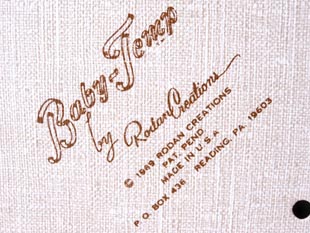 Baby-Temp
by Rodan Creations
© 1969 RODAN CREATIONS
PAT. PEND
MADE IN U.S.A
P.O. BOX 436 READING, PA. 19603